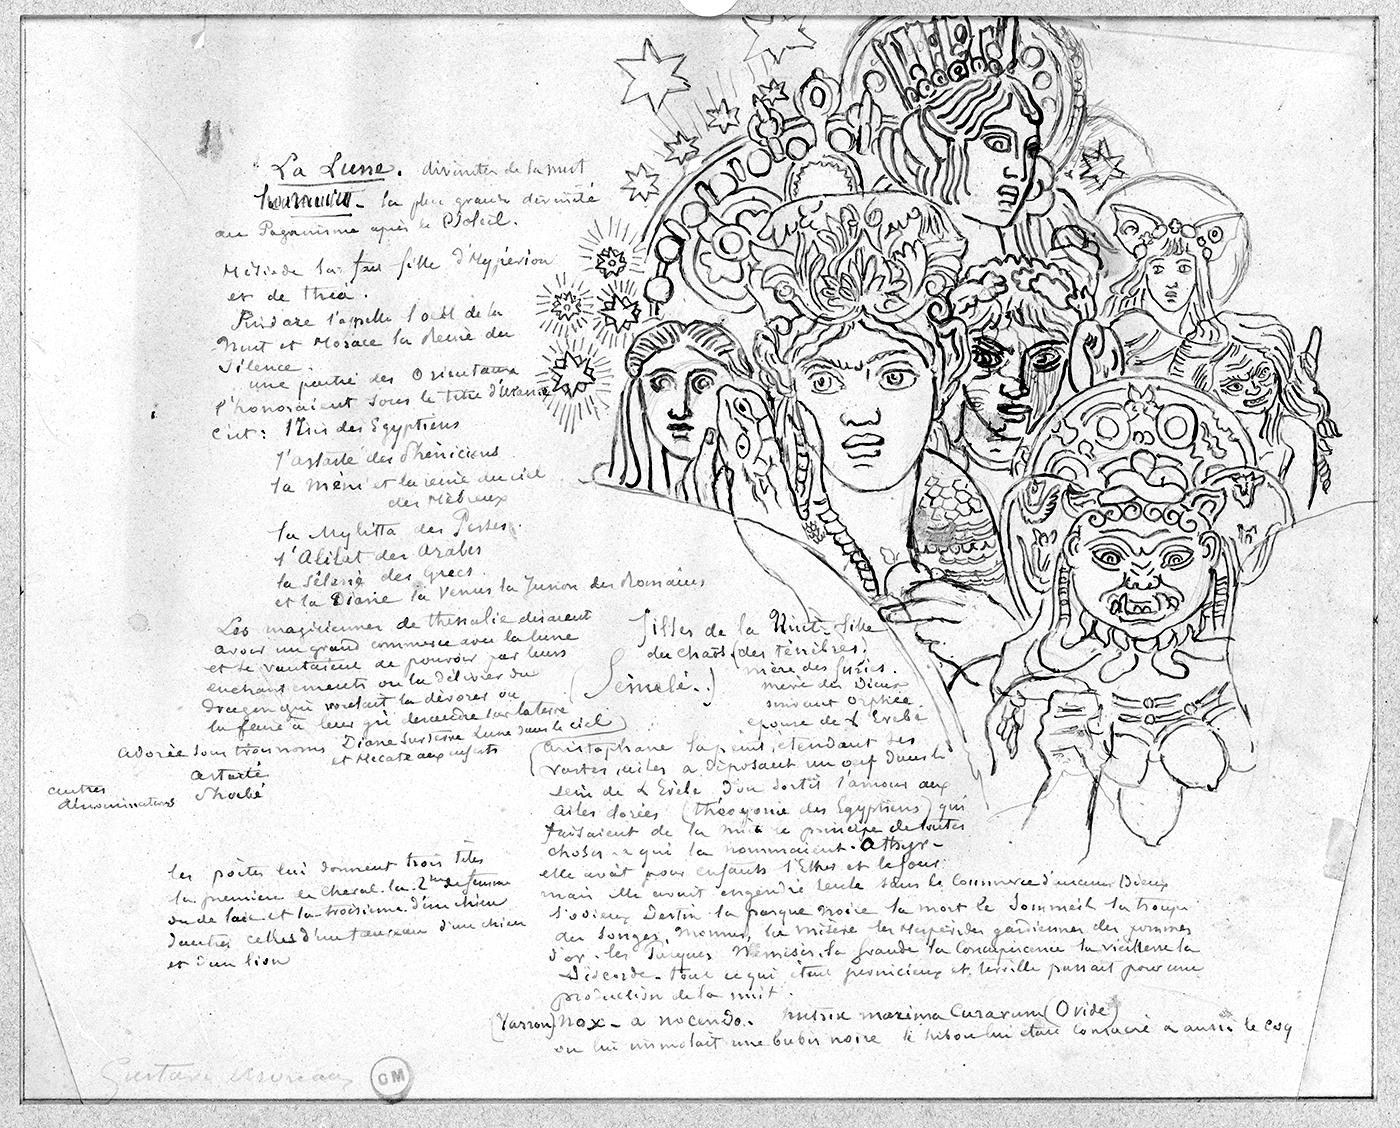 La Lune. divinités de la nuit
la plus grande divinité
du Paganisme après le Soleil.
Hésiode la fait fille d'Hypérion
et de théa.
Pindare l'appelle l'oeil de la
Nuit et Horace la Reine du
Silence.
une partie des Orientaux
l'honoraient sous le titre d'Uranie
C'est: l'Isis des Egyptiens
l'astarte des Phéniciens
la Méni et la reine du ciel
des Hébreux
la Mylitta des Perses.
l'Alilat des Arabes
la Séléné des Grecs
et la Diane la Venus la Junon des Romains
Les magiciennes de thessalie disaient
avoir un grand commerce avec la lune
et se vantaient de pouvoir par leurs
enchantements ou la délivrer du
dragon qui voulait la dévorer ou
la faire à leur gré descendre sur la terre
adorée sous trois noms Diane sur terre Lune dans le ciel)
et Hécate aux enfers
astarté
autres
dénominations Phoebé
les poètes lui donnent trois têtes
la première de Cheval. la 2me de femme
ou de laie et la troisième d'un chien
d'autres celles d'un taureau d'un chien
et d'un lion
filles de la Nuit - fille
du chaos (des ténèbres.
(Sémélé.) mère des furies.
mère des Dieux
suivant Orphée.
épouse de l'Erèbe
(Aristophane la peint, étendant ses
vastes ailes a déposant un oeuf dans le
sein de l'Erèbe d'où sortit l'amour aux
ailes dorées (théogonie des Egyptiens) qui
faisaient de la nuit le principe de toutes
choses - a qui la nommaient. Athyr -
elle avait pour enfants l'Ether et le jour
mais elle avait engendré seule sans le Commerce d'aucun Dieux
l'odieux Destin la parque noire la mort le Sommeil la troupe
des Songes, Momus, la misère les Hespérides gardiennes des pommes
d'or - les Parques Némésis. la fraude la Concupiscence la vieillesse la
Discorde - tout ce qui était pernicieux et terrible passait pour une
production de la nuit.
(Varron) Nox - a nocendo. nutrix maxima Curarum (Ovide)
on lui immolait une brebis noire le hibou lui était Consacré a aussi le Coq
Gustave Moreau
GM